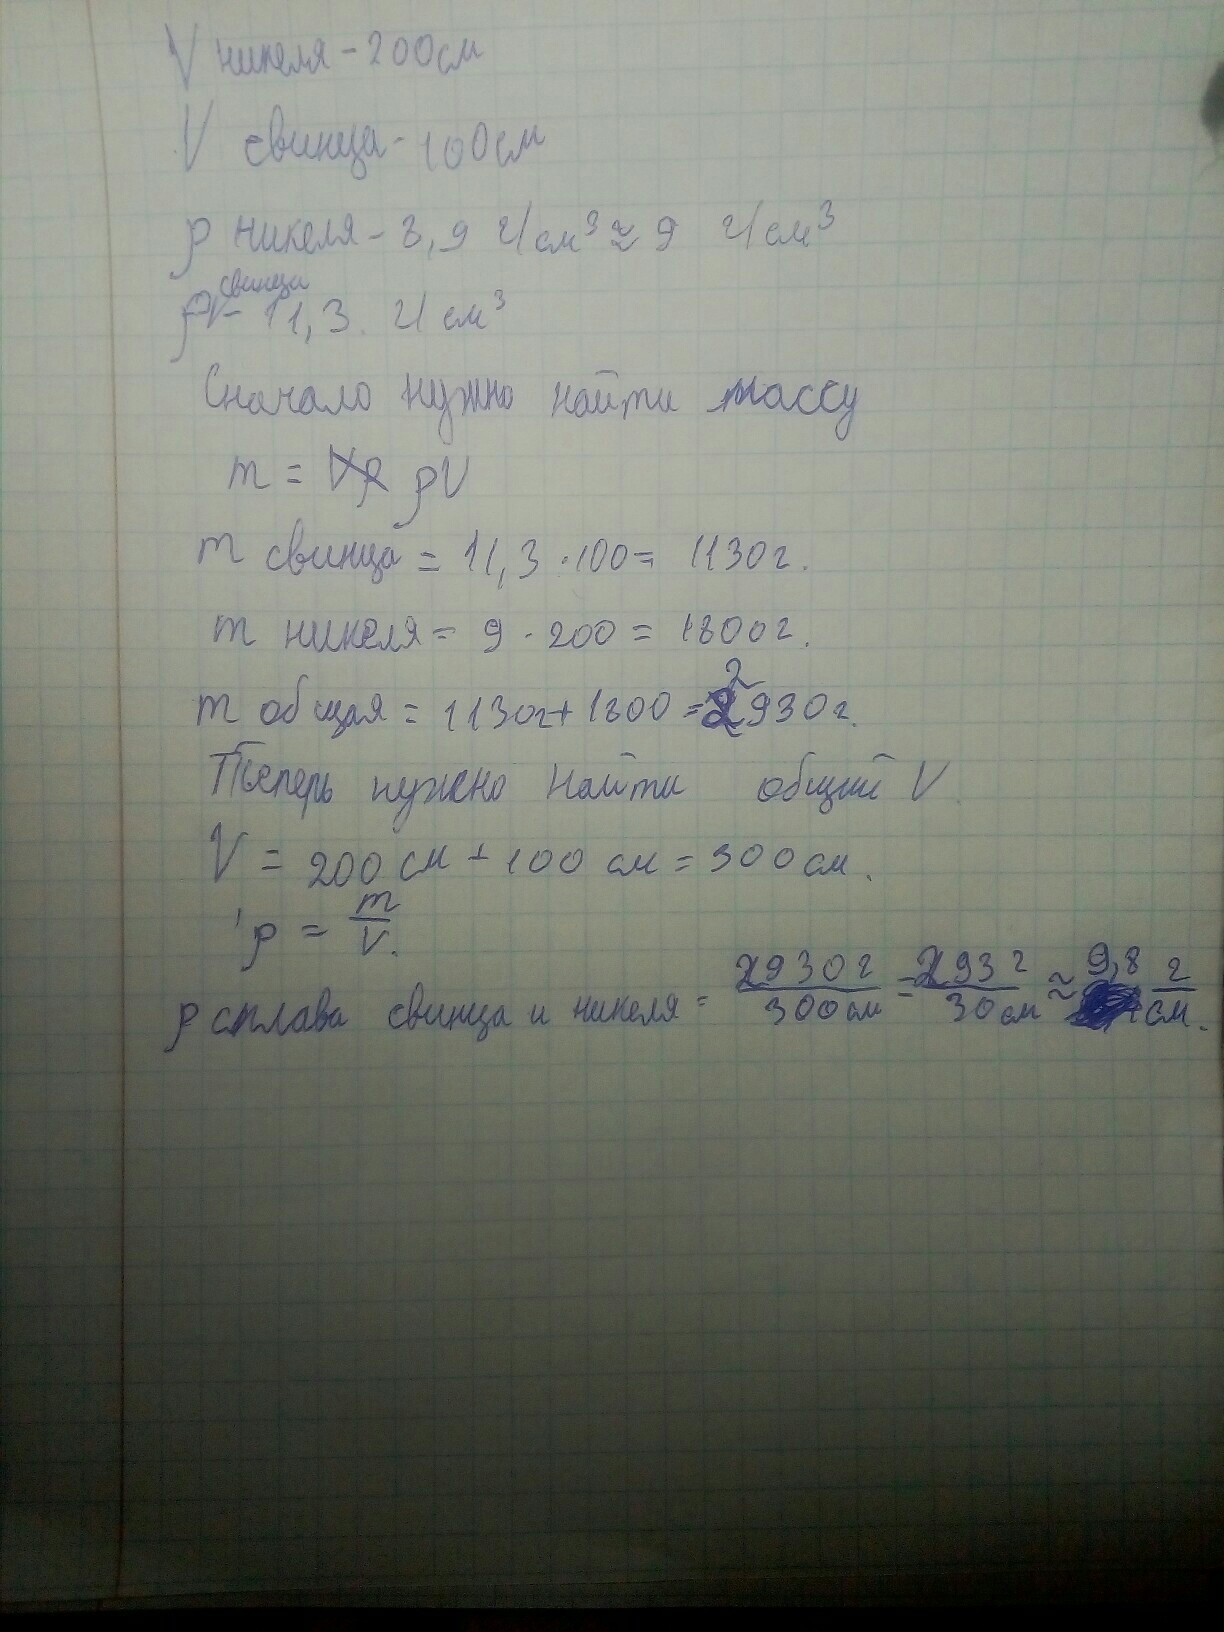 V никеля - 200см
V свинца - 100см
ρ никеля - 8,9 г/см³ ≈ 9 г/см³
ρ свинца - 11,3. г/см³
Сначало нужно найти массу
m = ρV
m свинца = 11,3 · 100 = 1130г.
m никеля = 9 · 200 = 1800г.
m общая = 1130г + 1800 = 2930г.
Теперь нужно найти общий V.
V = 200 см + 100 см = 300 см.
ρ = m/V.
ρ сплава свинца и никеля = 2930 г/300 см = 293 г/30 см ≈ 9,8 г/см.